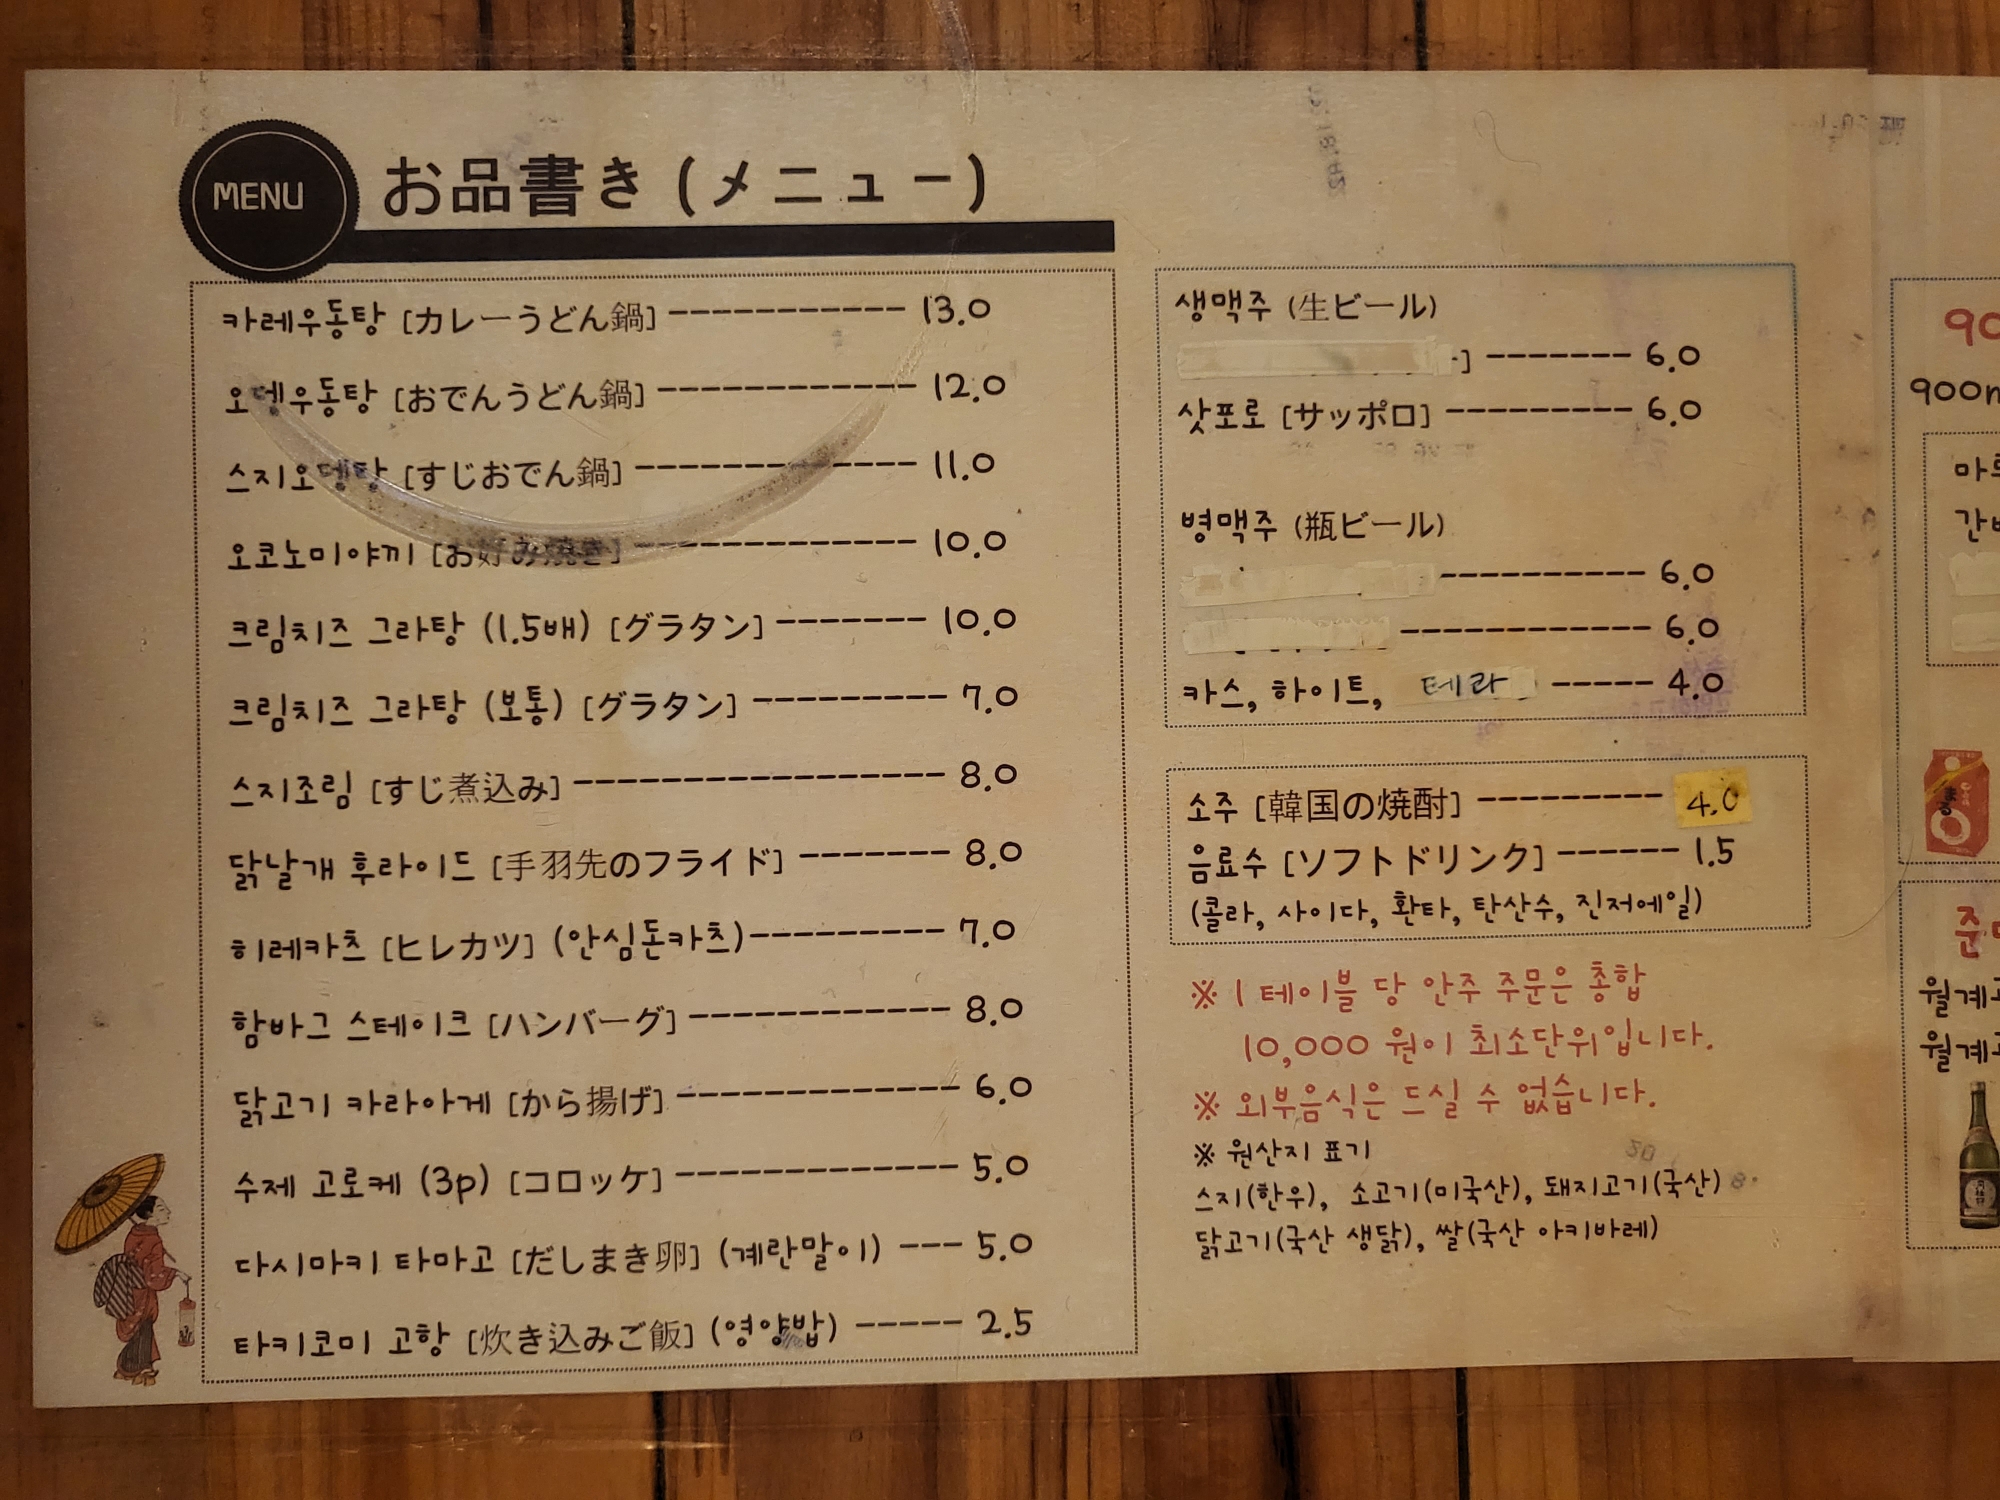 MENU お品書き (メニュー)
카레우동탕 [カレーうどん鍋] ----------- 13.0
오뎅우동탕 [おでんうどん鍋] ------------ 12.0
스지오뎅탕 [すじおでん鍋] ------------- 11.0
오코노미야끼 [お好み焼き] ------------- 10.0
크림치즈 그라탕 (1.5배) [グラタン] ------- 10.0
크림치즈 그라탕 (보통) [グラタン] --------- 7.0
스지조림 [すじ煮込み] ----------------- 8.0
닭날개 후라이드 [手羽先のフライド] ------- 8.0
히레카츠 [ヒレカツ] (안심돈카츠)--------- 7.0
함바그 스테이크 [ハンバーグ] ------------ 8.0
닭고기 카라아게 [から揚げ] ------------- 6.0
수제 고로케 (3p) [コロッケ] ------------- 5.0
다시마키 타마고 [だしまき卵] (계란말이) --- 5.0
타키코미 고항 [炊き込みご飯] (영양밥) ----- 2.5
생맥주 (生ビール)
] ------- 6.0
삿포로 [サッポロ] --------- 6.0
병맥주 (瓶ビール)
---------- 6.0
------------ 6.0
카스, 하이트, 테라 ----- 4.0
소주 [韓国の焼酎] --------- 4.0
음료수 [ソフトドリンク] ------ 1.5
(콜라, 사이다, 환타, 탄산수, 진저에일)
※ 1 테이블 당 안주 주문은 총합
10,000 원이 최소단위입니다.
※ 외부음식은 드실 수 없습니다.
※ 원산지 표기
스지(한우), 소고기(미국산), 돼지고기(국산)
닭고기(국산 생닭), 쌀(국산 아키바레)
월계
월계